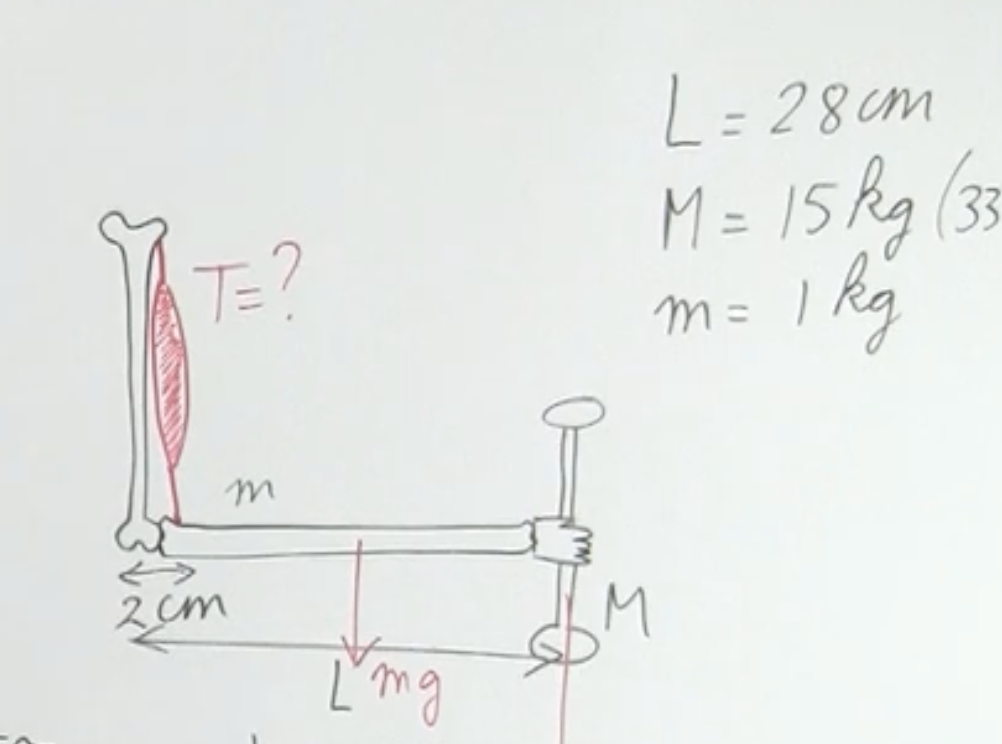 L = 28 cm
M = 15 kg (33
m = 1 kg
T = ?
m
2 cm
M
L
mg